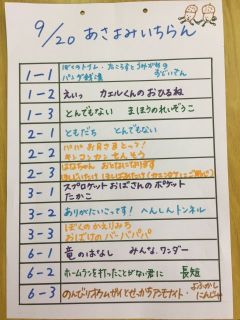 9/20 あさよみいちらん
1-1
ぼくのトイレ
パンダ銭湯
1-2
えいっ カエルくんのおひるね
1-3
とんでもない まほうのれいぞうこ
2-1
ともだち とんでもない
2-2
パパ お月さまとって!
キンコンカンせんそう
2-3
はなちゃん おとなになります
3-1
スプロケットおばさんのポケット
たかこ
3-2
ありがたいこってす! へんしんトンネル
3-3
ぼくのかえりみち
おばけのバーバパパ
6-1
竜のはなし みんな、ワンダー
6-2
ホームランを打ったことがない君に 長短
6-3
のんびりオウムガイとせっかちアンモナイト
よふかしにんじゃ